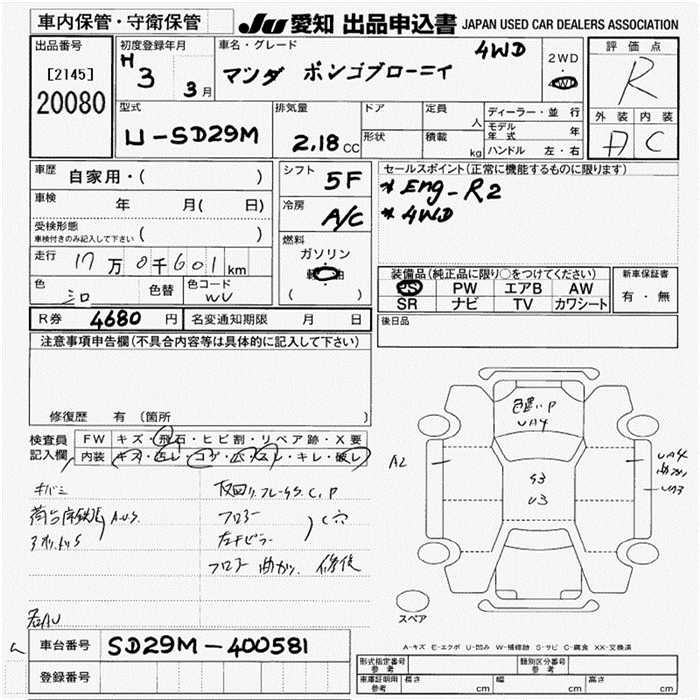 車内保管・守衛保管
JU 愛知 出品申込書 JAPAN USED CAR DEALERS ASSOCIATION
出品番号
[2145]
20080
初度登録年月
H 3
3月
車名・グレード
4WD
マツダ ボンゴブローニイ
2WD
4WD
評価点
R
外装 内装
A C
型式
U-SD29M
排気量
2.18 CC
ドア
形状
定員
人
積載
kg
ディーラー・並行
モデル年式 年
ハンドル 左・右
車歴
自家用・( )
車検
年 月( 日)
受検形態
車検付きのみ記入して下さい ( )
走行
17万0千601km
色
シロ
色替
色コード
WU
シフト
5F
冷房
A/C
燃料
ガソリン
軽油
( )
セールスポイント(正常に機能するものに限ります)
* Eng-R2
* 4WD
装備品(純正品に限り○をつけてください)
PS PW エアB AW
SR ナビ TV カワシート
新車保証書
有・無
R券 4680 円
名変通知期限 月 日
後日品
注意事項申告欄(不具合内容等は具体的に記入して下さい)
修復歴 有(箇所 )
検査員
記入欄
FW キズ・飛石・ヒビ割・リペア跡・X要
内装 (キズ・ヨレ・コゲ・穴・スレ・キレ・破レ)
キバミ
フロアー
フロアー 曲がり 修復
色違い P
UA4
A2
S3
U3
UA4
曲がり
UA3
スペア
A-キズ E-エクボ U-凹み W-補修跡 S-サビ C-腐食 XX-交換済
車台番号 SD29M-400581
登録番号
形式指定番号
参考
類別区分番号
参考
車庫証明用
参考
長さ cm
幅 cm
高さ cm